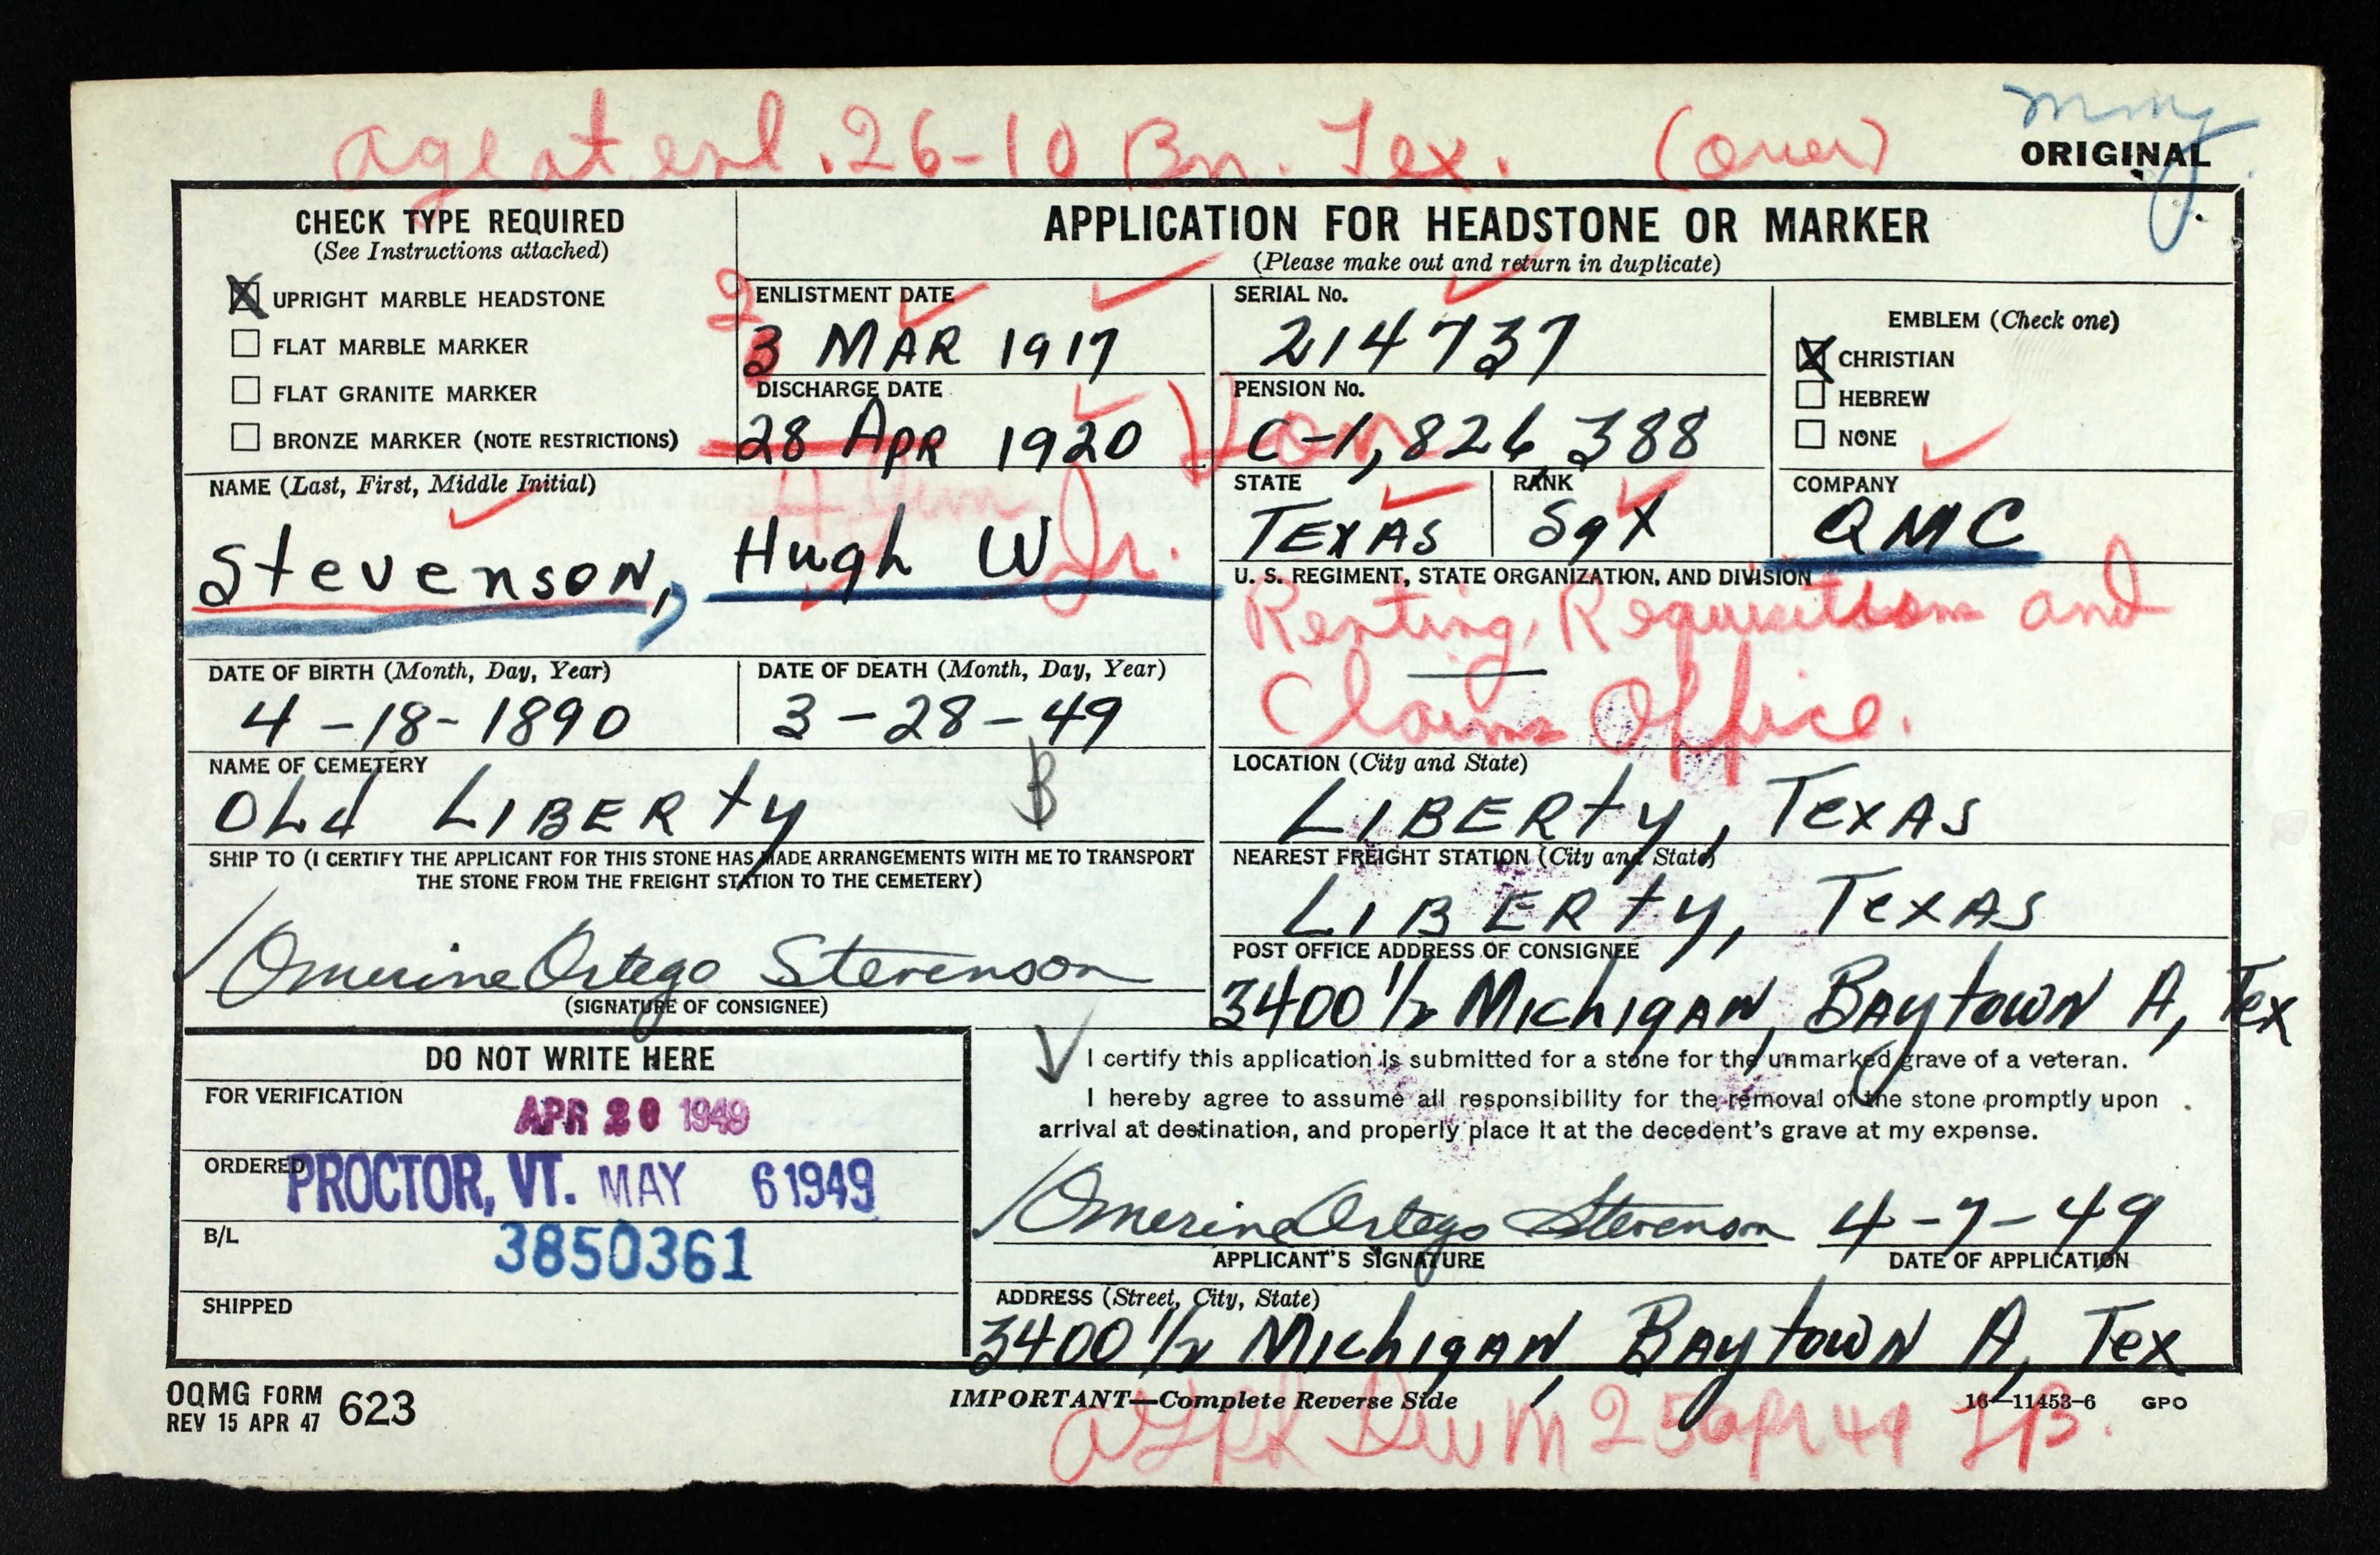 mmg
age at enl. 26-10 Bn. Tex. (over)
ORIGINAL
CHECK TYPE REQUIRED
(See Instructions attached)
X UPRIGHT MARBLE HEADSTONE
FLAT MARBLE MARKER
FLAT GRANITE MARKER
BRONZE MARKER (NOTE RESTRICTIONS)
APPLICATION FOR HEADSTONE OR MARKER
(Please make out and return in duplicate)
ENLISTMENT DATE
2
3 MAR 1917
DISCHARGE DATE
28 APR 1920
SERIAL No.
214737
PENSION No.
C-1,826 388
EMBLEM (Check one)
X CHRISTIAN
HEBREW
NONE
NAME (Last, First, Middle Initial)
Stevenson, Hugh W Jr.
STATE
TEXAS
RANK
Sgt
COMPANY
QMC
U. S. REGIMENT, STATE ORGANIZATION, AND DIVISION
Renting, Requisition and
Claims Office.
DATE OF BIRTH (Month, Day, Year)
4-18-1890
DATE OF DEATH (Month, Day, Year)
3-28-49
NAME OF CEMETERY
OLd LIBERty
B
LOCATION (City and State)
LIBERty, TexAS
SHIP TO (I CERTIFY THE APPLICANT FOR THIS STONE HAS MADE ARRANGEMENTS WITH ME TO TRANSPORT
THE STONE FROM THE FREIGHT STATION TO THE CEMETERY)
NEAREST FREIGHT STATION (City and State)
LIBERty, TexAS
Omerine Ortego Stevenson
(SIGNATURE OF CONSIGNEE)
POST OFFICE ADDRESS OF CONSIGNEE
3400 1/2 MichigAN, BAytowN A, Tex
DO NOT WRITE HERE
FOR VERIFICATION
APR 20 1949
ORDERED
PROCTOR, VT. MAY 6 1949
B/L
3850361
SHIPPED
I certify this application is submitted for a stone for the unmarked grave of a veteran.
I hereby agree to assume all responsibility for the removal of the stone promptly upon
arrival at destination, and properly place it at the decedent's grave at my expense.
Omerine Ortego Stevenson 4-7-49
APPLICANT'S SIGNATURE
DATE OF APPLICATION
ADDRESS (Street, City, State)
3400 1/2 MichigAN, BAytowN A, Tex
OQMG FORM 623
REV 15 APR 47
IMPORTANT—Complete Reverse Side
16—11453-6 GPO
25 apr 49